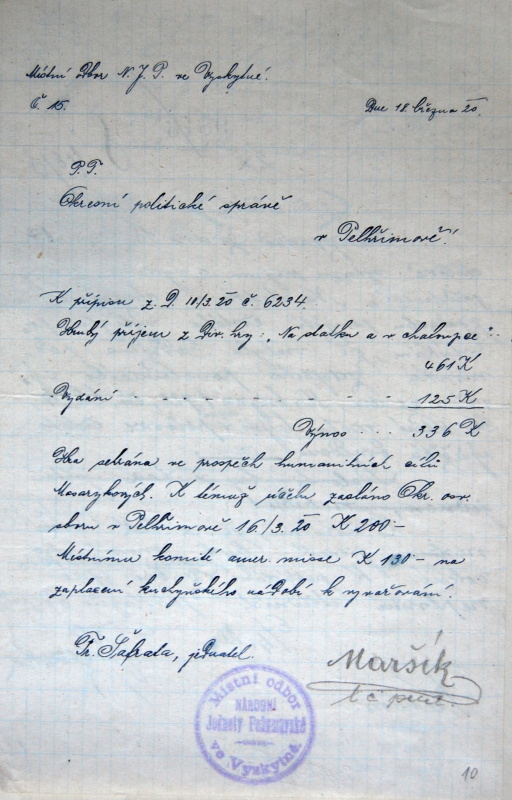 Místní odbor N. J. P. ve Vyskytné.
Č. 15.
Dne 18. března 20.
P.T.
Okresní politické správě
v Pelhřimově!
K přípisu z D. 10/3. 20 č. 6234.
Hrubý příjem z Div. hry: „Na statku a v chaloupce"
461 K
Vydání - - - - - - - - - - 125 K
Výnos - - - 336 K
Hra sehrána ve prospěch humanitních cílů
Masarykových. K témuž účelu zasláno Okr. osv.
sboru v Pelhřimově 16/3. 20 K 200-
Místnímu komité amer. misse K 130- na
zaplacení kuchyňského nádobí k vyvařování.
Fr. Šafrata, jednatel.
Maršík
t č
Místní odbor
NÁRODNÍ
Jednoty Pošumavské
ve Vyskytné.
10